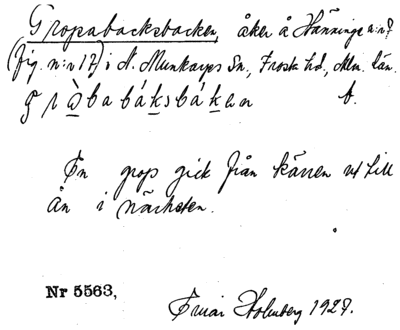 Gropabacksbacken, åker å Hänninge n:r?
(fig. n:r 17) i N. Munkarps sn., Frosta hd., Mlm. län.
b.
En grop gick från kärren ut till
ån i närheten.
Nr 5563,
Einar Holmberg 1927.